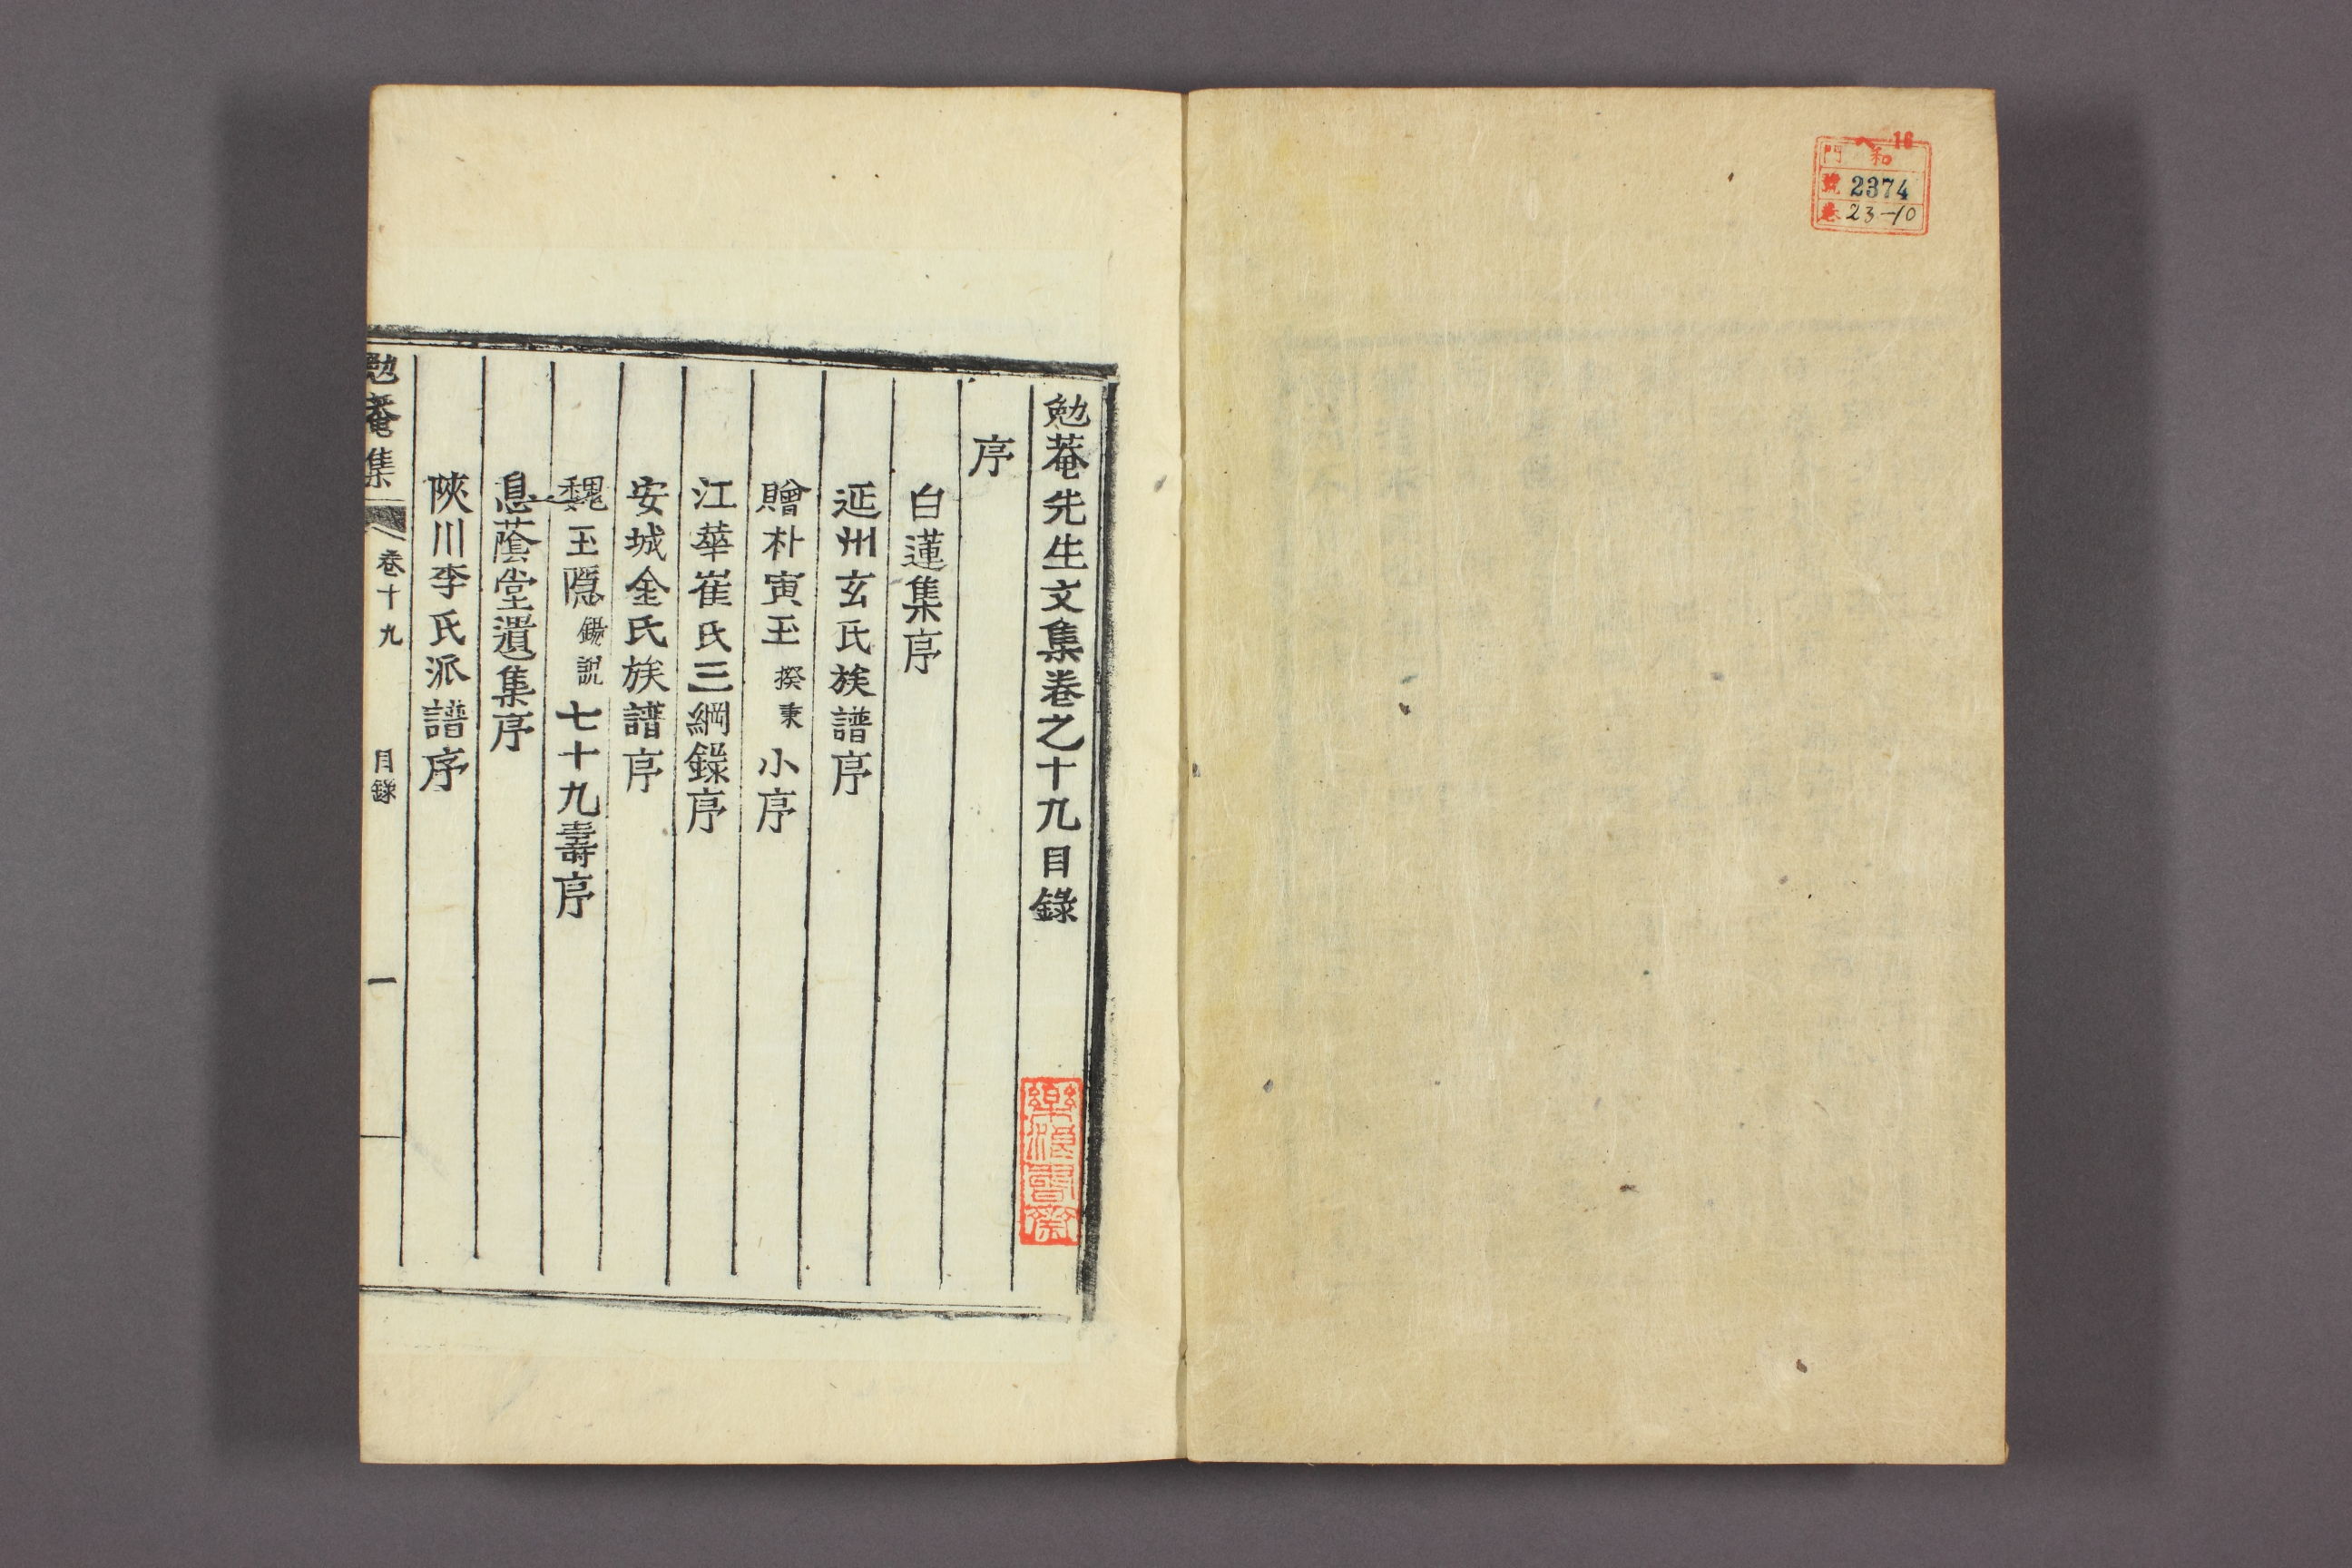 16
門 和
號 2374
卷 23-10
勉菴先生文集卷之十九目錄
序
白蓮集序
延州玄氏族譜序
贈朴寅玉揆秉小序
江華崔氏三綱錄序
安城金氏族譜序
魏玉隱錫說七十九壽序
息蔭堂遺集序
陜川李氏派譜序
勉菴集 卷十九 目錄 一
樂浪書齋